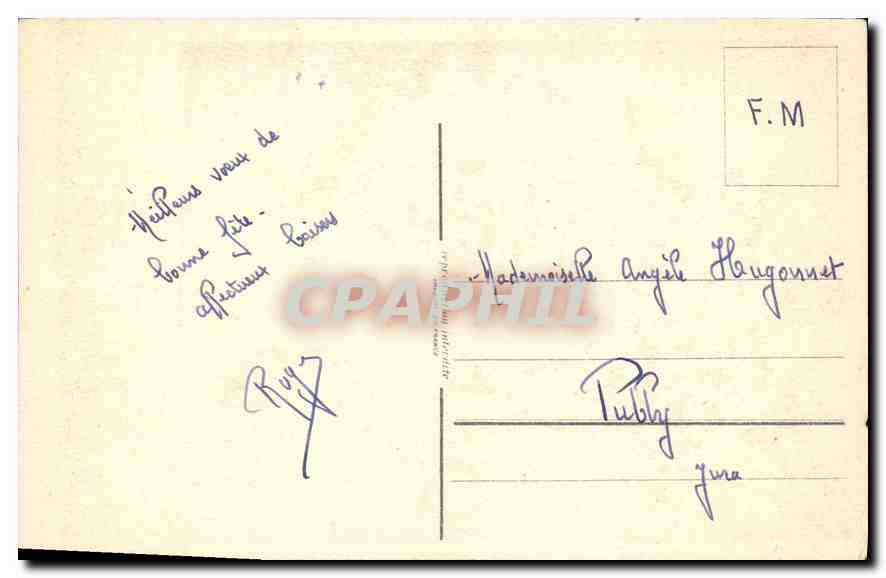 F.M
Meilleurs voeux de
bonne fête -
affectueux baisers
Roger
Mademoiselle Angèle Hugonnet
Publy
Jura
reproduction interdite
CPAPHIL